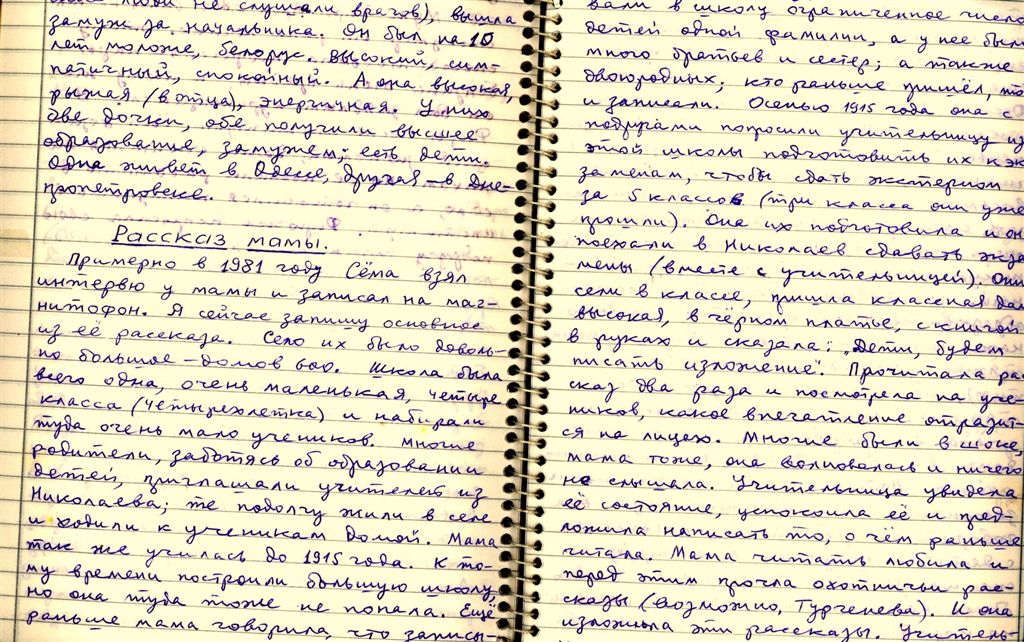 люди не слушали врачов), вышла
замуж за начальника. Он был на 10
лет моложе, белорус. высокий, сим-
патичный, спокойный. А она высокая,
рыжая (в отца), энергичная. У них
две дочки, обе получили высшее
образование, замужем; есть дети.
Одна живёт в Одессе, другая – в Дне-
пропетровске.
Рассказ мамы.
Примерно в 1981 году Сёма взял
интервью у мамы и записал на маг-
нитофон. Я сейчас запишу основное
из её рассказа. Село их было доволь-
но большое – домов 600. Школа была
всего одна, очень маленькая, четыре
класса (четырехлетка) и набирали
туда очень мало учеников. Многие
родители, заботясь об образовании
детей, приглашали учителей из
Николаева; те подолгу жили в селе
и ходили к ученикам домой. Мама
так же училась до 1915 года. К то-
му времени построили большую школу,
но она туда тоже не попала. Ещё
раньше мама говорила, что записы-
вали в школу ограниченное число
детей одной фамилии, а у нее было
много братьев и сестер; а также
двоюродных; кто раньше пришёл, то
и записали. Осенью 1915 года она с
подругами попросили учительницу из
этой школы подготовить их к эк
заменам, чтобы сдать экстерном
за 5 классов (три класса они уже
прошли). Она их подготовила и он
поехали в Николаев сдавать экза
мены (вместе с учительницей). Они
сели в классе, пришла классная да
высокая, в чёрном платье, с книгой
в руках и сказала: „Дети, будем
писать изложение". Прочитала ра
сказ два раза и посмотрела на уче
ников, какое впечатление отразит-
ся на лицах. Многие были в шоке,
мама тоже, она волновалась и ничего
не слышала. Учительница увидела
её состояние, успокоила её и пред-
ложила написать то, о чём раньше
читала. Мама читать любила и
перед этим прочла охотничьи рас-
сказы (возможно, Тургенева). И она
изложила эти рассказы. Учитель-